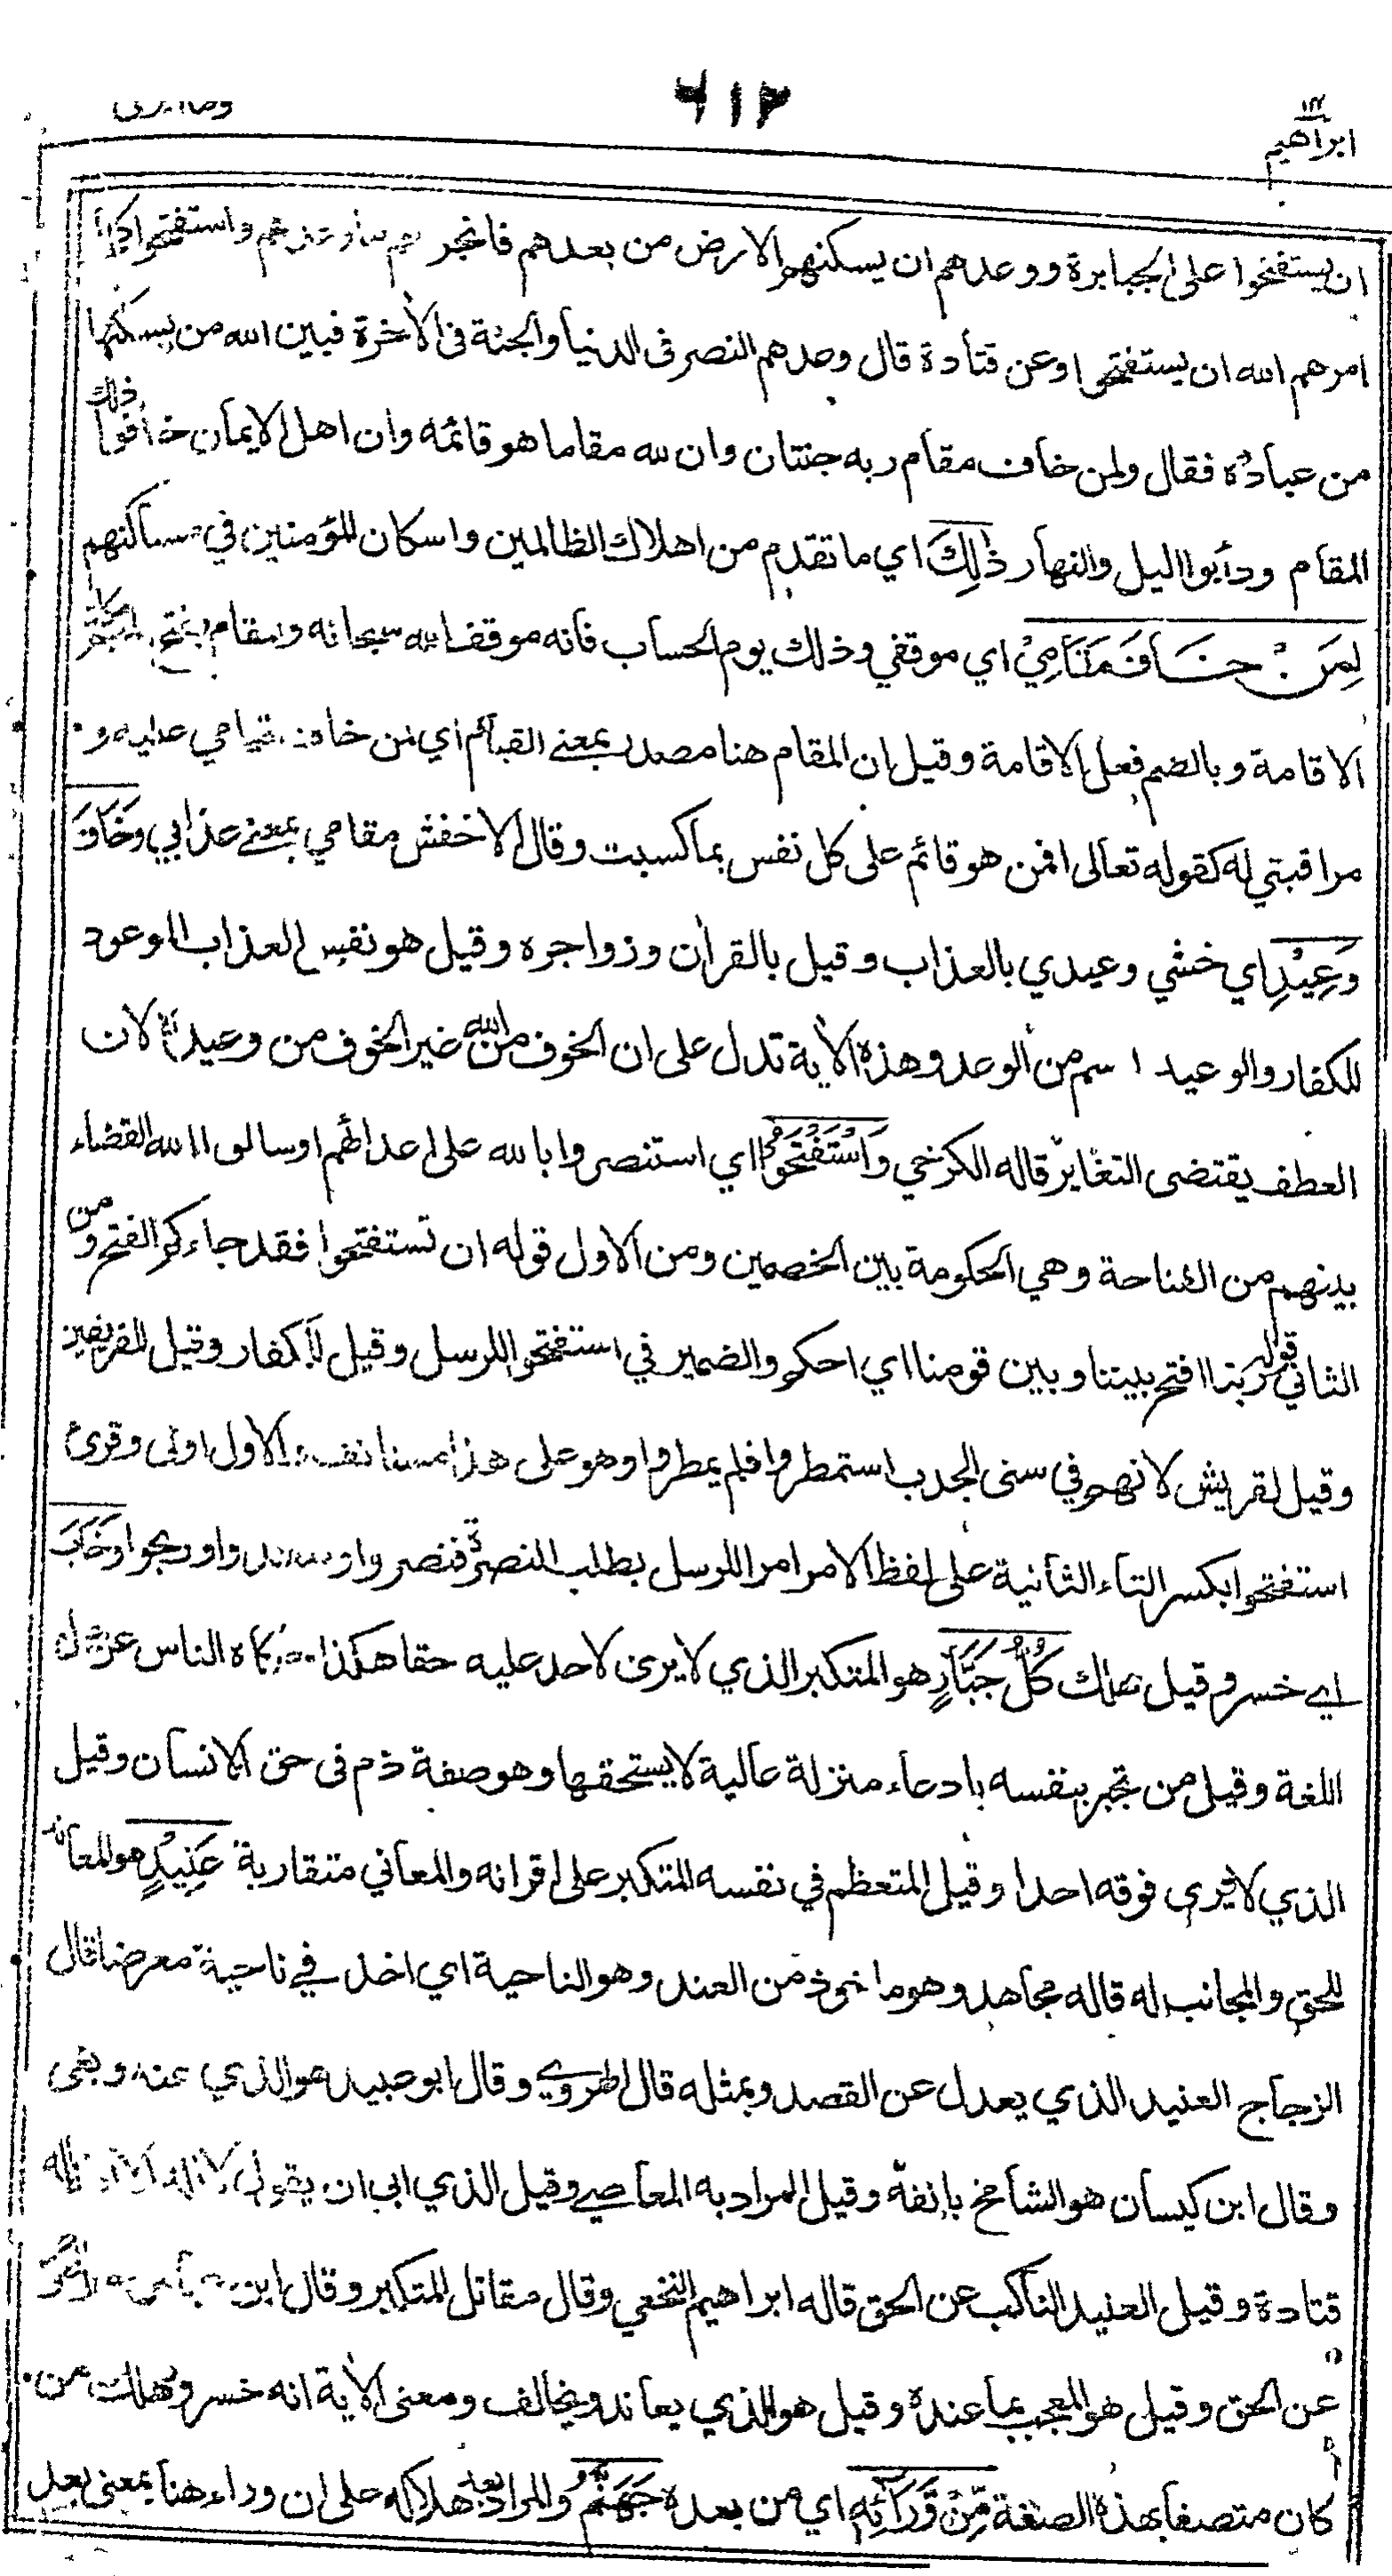 ابراهيم ١٤
٦١٢
وما ابرئ
ان يستفتحوا على الجبابرة ووعدهم ان يسكنهم الارض من بعدهم فانجز لهم ما وعدهم واستفتحوا كما
امرهم الله ان يستفتحوا وعن قتادة قال وعدهم النصر فى الدنيا والجنة فى الأخرة فبين الله من يسكنها
من عباده فقال ولمن خاف مقام ربه جنتان وان لله مقاما هو قائمه وان اهل الايمان خافوا ذلك
المقام ودأبوا الليل والنهار ذٰلِكَ اي ما تقدم من اهلاك الظالمين واسكان المؤمنين في مساكنهم
لِمَنْ خَافَ مَقَامِيْ اي موقفي وذلك يوم الحساب فانه موقف الله سبحانه والمقام بفتح الميم مكان
الاقامة وبالضم فعل الاقامة وقيل ان المقام هنا مصدر بمعنى القيام اي لمن خاف قيامي عليه و
مراقبتي له كقوله تعالى افمن هو قائم على كل نفس بما كسبت وقال الاخفش مقامي بمعنى عذابي وَخَافَ
وَعِيْدِ اي خشي وعيدي بالعذاب وقيل بالقرأن وزواجره وقيل هو نفس العذاب الموعود
للكفار والوعيد اسم من الوعد وهذه الأية تدل على ان الخوف من الله غير الخوف من وعيده لان
العطف يقتضى التغاير قاله الكرخي وَاسْتَفْتَحُوْا اي استنصروا بالله على اعدائهم او سالوا الله القضاء
بينهم من الفتاحة وهي الحكومة بين الخصمين ومن الاول قوله ان تستفتحوا فقد جاءكم الفتح ومن
الثاني قوله ربنا افتح بيننا وبين قومنا اي احكم والضمير في استفتحوا للرسل وقيل للكفار وقيل للفريقين
وقيل لقريش لانهم في سنى الجدب استمطروا فلم يمطروا وهو على هذا مستانف والاول اولى وقرئ
استفتحوا بكسر التاء الثانية على لفظ الامر امرا للرسل بطلب النصرة فنصروا وسعدوا وربحوا وَخَابَ
اي خسر وقيل هلك كُلُّ جَبَّارٍ هو المتكبر الذي لا يرى لاحد عليه حقا هكذا حكاه الناس عن اهل
اللغة وقيل من تجبر بنفسه بادعاء منزلة عالية لا يستحقها وهو صفة ذم فى حق الانسان وقيل
الذي لا يرى فوقه احدا وقيل المتعظم في نفسه المتكبر على اقرانه والمعاني متقاربة عَنِيْدٍ هو المعاند
للحق والمجانب له قاله مجاهد وهو ماخوذ من العند وهو الناحية اي اخذ في ناحية معرضا قال
الزجاج العنيد الذي يعدل عن القصد وبمثله قال الهروي وقال ابو عبيد هو الذي عند وبغى
وقال ابن كيسان هو الشامخ بانفه وقيل المراد به المعاصي وقيل الذي ابى ان يقول لا اله الا الله قاله
قتادة وقيل العنيد الناكب عن الحق قاله ابراهيم النخعي وقال مقاتل المتكبر وقال ابن
عن الحق وقيل هو المعجب بما عنده وقيل هو الذي يعاند ويخالف ومعنى الأية انه خسر وهلك من
كان متصفا بهذه الصفة مِّنْ وَّرَآئِهِ اي من بعده جَهَنَّمُ والمراد بعد هلاكه على ان وراء هنا بمعنى بعد